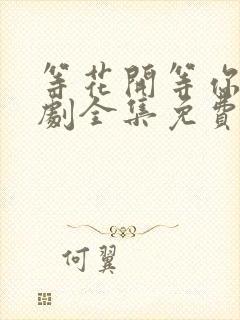 等花開等你
劇全集免費
何翼